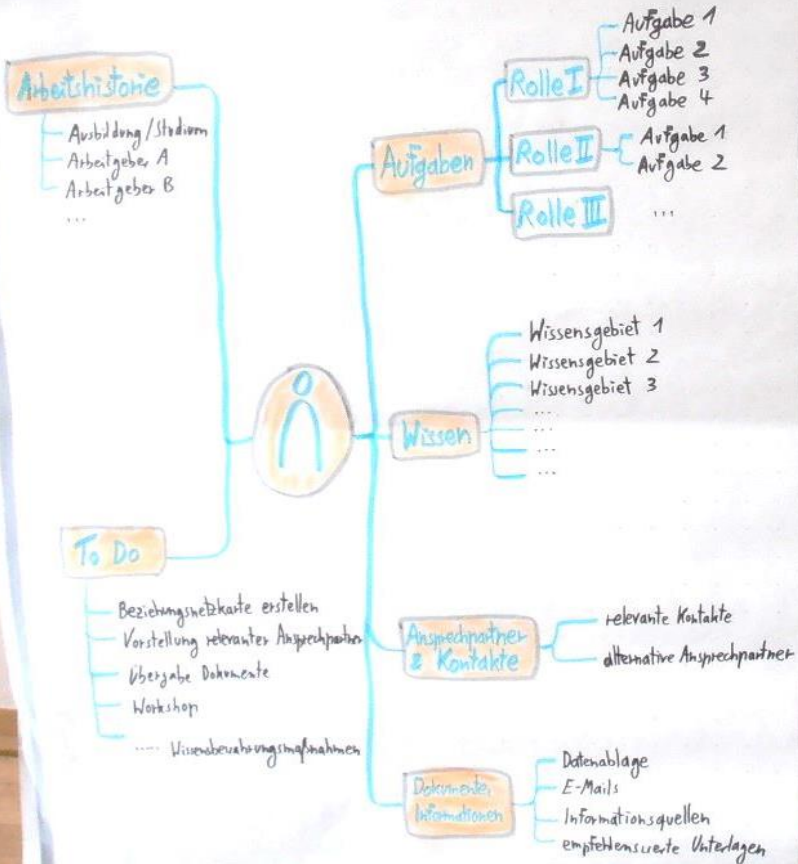 Arbeitshistorie
Ausbildung/Studium
Arbeitgeber A
Arbeitgeber B
...
Aufgaben
Rolle I
Aufgabe 1
Aufgabe 2
Aufgabe 3
Aufgabe 4
Rolle II
Aufgabe 1
Aufgabe 2
Rolle III
...
Wissen
Wissensgebiet 1
Wissensgebiet 2
Wissensgebiet 3
...
...
...
...
To Do
Beziehungsnetzkarte erstellen
Vorstellung relevanter Ansprechpartner
Übergabe Dokumente
Workshop
.... Wissensbewahrungsmaßnahmen
Ansprechpartner
& Kontakte
relevante Kontakte
alternative Ansprechpartner
Dokumente,
Informationen
Datenablage
E-Mails
Informationsquellen
empfehlenswerte Unterlagen